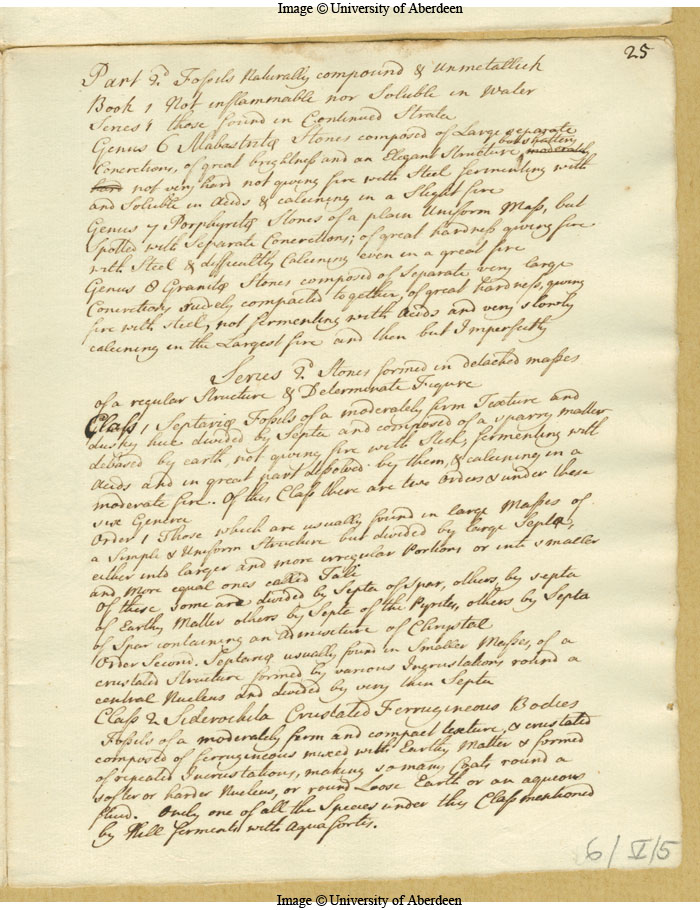 Image © University of Aberdeen
25
Part 2d Fossils Naturally compound & Unmetallick
Book 1 Not inflammable nor Soluble in Water
Series 1 those found in Continued Strata
Genus 6 Alabastritæ Stones composed of Large separate
Concretions, of great brightness and an Elegant Structure, but shattery moderately
hard not very hard not giving fire with Steel fermenting with
and Soluble in Acids & calcining in a Slight fire
Genus 7 Porphyritæ Stones of a plain Uniform Mass, but
spotted with Separate Concretions; of great hardness giving fire
with Steel & difficultly Calcining even in a great fire
Genus 8 Granitæ Stones composed of Separate very large
Concretions rudely compacted together, of great hardness, giving
fire with steel, not fermenting with Acids and very slowly
calcining in the Largest fire and then but Imperfectly
Series 2d Stones formed in detached masses
of a regular Structure & Determinate Figure
Class 1 Septariæ Fossils of a moderately firm Texture and
dusky hue divided by Septa and composed of a sparry matter
debased by earth, not giving fire with Steel, fermenting with
Acids and in great part disolved by them, & calcining in a
moderate fire. Of this Class there are two Orders & under these
six Genera
Order 1 Those which are usually found in large Masses of
a Simple & Uniform Structure but divided by large Septa,
either into larger and more irregular Portions or into smaller
and More equal ones called Tali
Of these some are divided by Septa of Spar, others by septa
of Earthy Matter others by Septa of the Pyrites, others by Septa
of Spar containing an admixture of Chrystal
Order Second. Septariæ usually found in Smaller Masses, of a
crustated Structure formed by various Incrustations round a
central Nucleus and divided by very thin Septa
Class 2 Siderochita Crustated Ferrugineous Bodies
Fossils of a moderately firm and compact texture, & crustated
composed of ferrugineous mixed with Earthy Matter & formed
of repeated Incrustations, making so many Coats round a
softer or harder Nucleus, or round Loose Earth or an aqueous
fluid. Only one of all the Species under this Class mentioned
by Hill ferments with Aqua fortis.
6/V/5
Image © University of Aberdeen